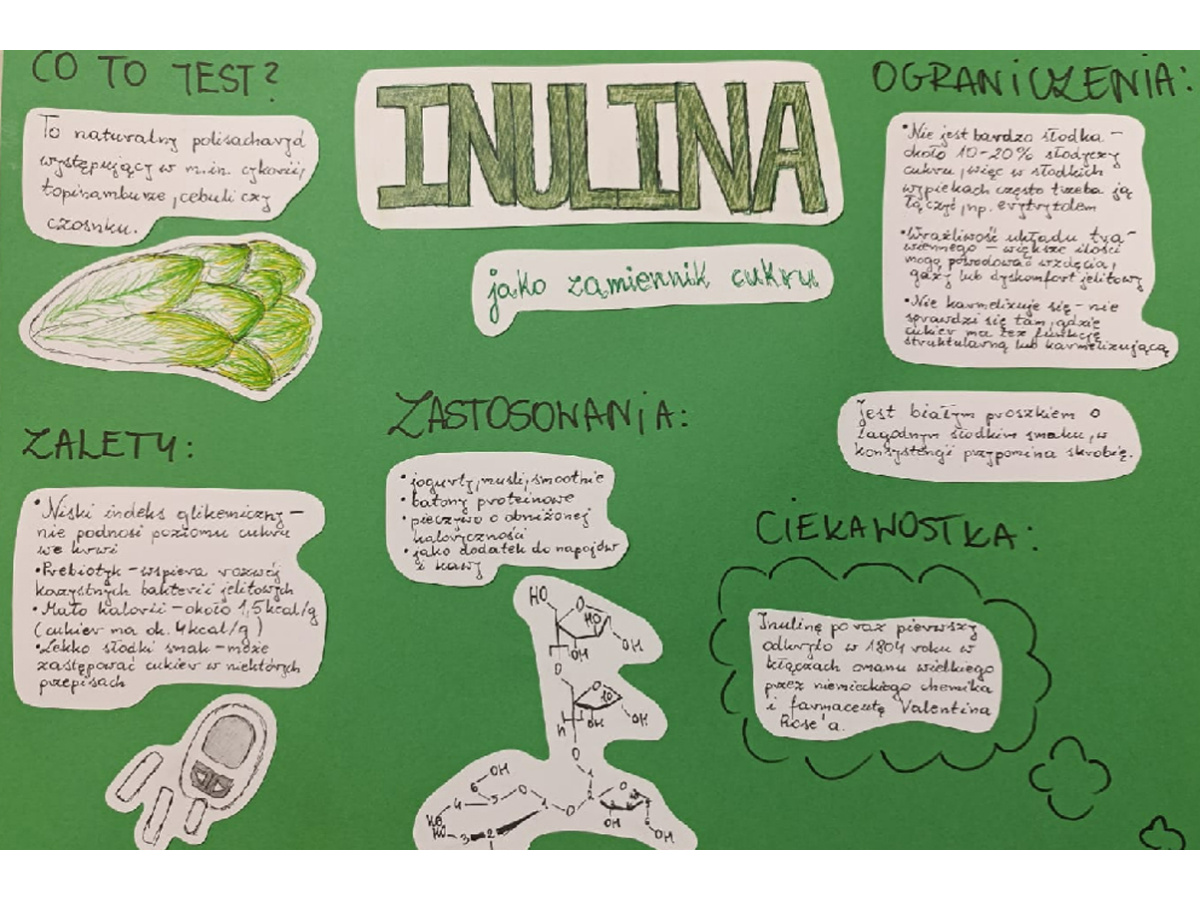 CO TO JEST?
To naturalny polisacharyd
występujący w m.in. cykorii,
topinamburze, cebuli czy
czosnku.
INULINA
jako zamiennik cukru
OGRANICZENIA:
•Nie jest bardzo słodka –
około 10-20% słodyczy
cukru, więc w słodkich
wypiekach często trzeba ją
łączyć, np. erytrytolem
•Wrażliwość układu tra-
wiennego – większe ilości
mogą powodować wzdęcia,
gazy lub dyskomfort jelitowy
•Nie karmelizuje się – nie
sprawdzi się tam, gdzie
cukier ma też funkcję
strukturalną lub karmelizującą
Jest białym proszkiem o
łagodnym słodkim smaku, w
konsystencji przypomina skrobię.
ZALETY:
•Niski indeks glikemiczny –
nie podnosi poziomu cukru
we krwi
•Prebiotyk – wspiera rozwój
korzystnych bakterii jelitowych
•Mało kalorii – około 1,5kcal/g
(cukier ma ok. 4kcal/g)
•Lekko słodki smak – może
zastępować cukier w niektórych
przepisach
ZASTOSOWANIA:
•jogurty, musli, smootnie
•batony proteinowe
•pieczywo o obniżonej
kaloryczności
•jako dodatek do napojów
i kawy
HO
O
HO
OH
OH
O
O
10
OH
OH
h
O
OH
6
4
5
O
1
O
1
2
O
HO
HO
3
2
OH
6
OH
CIEKAWOSTKA:
Inulinę po raz pierwszy
odkryto w 1804 roku w
kłączach omanu wielkiego
przez niemieckiego chemika
i farmaceutę Valentina
Rose'a.